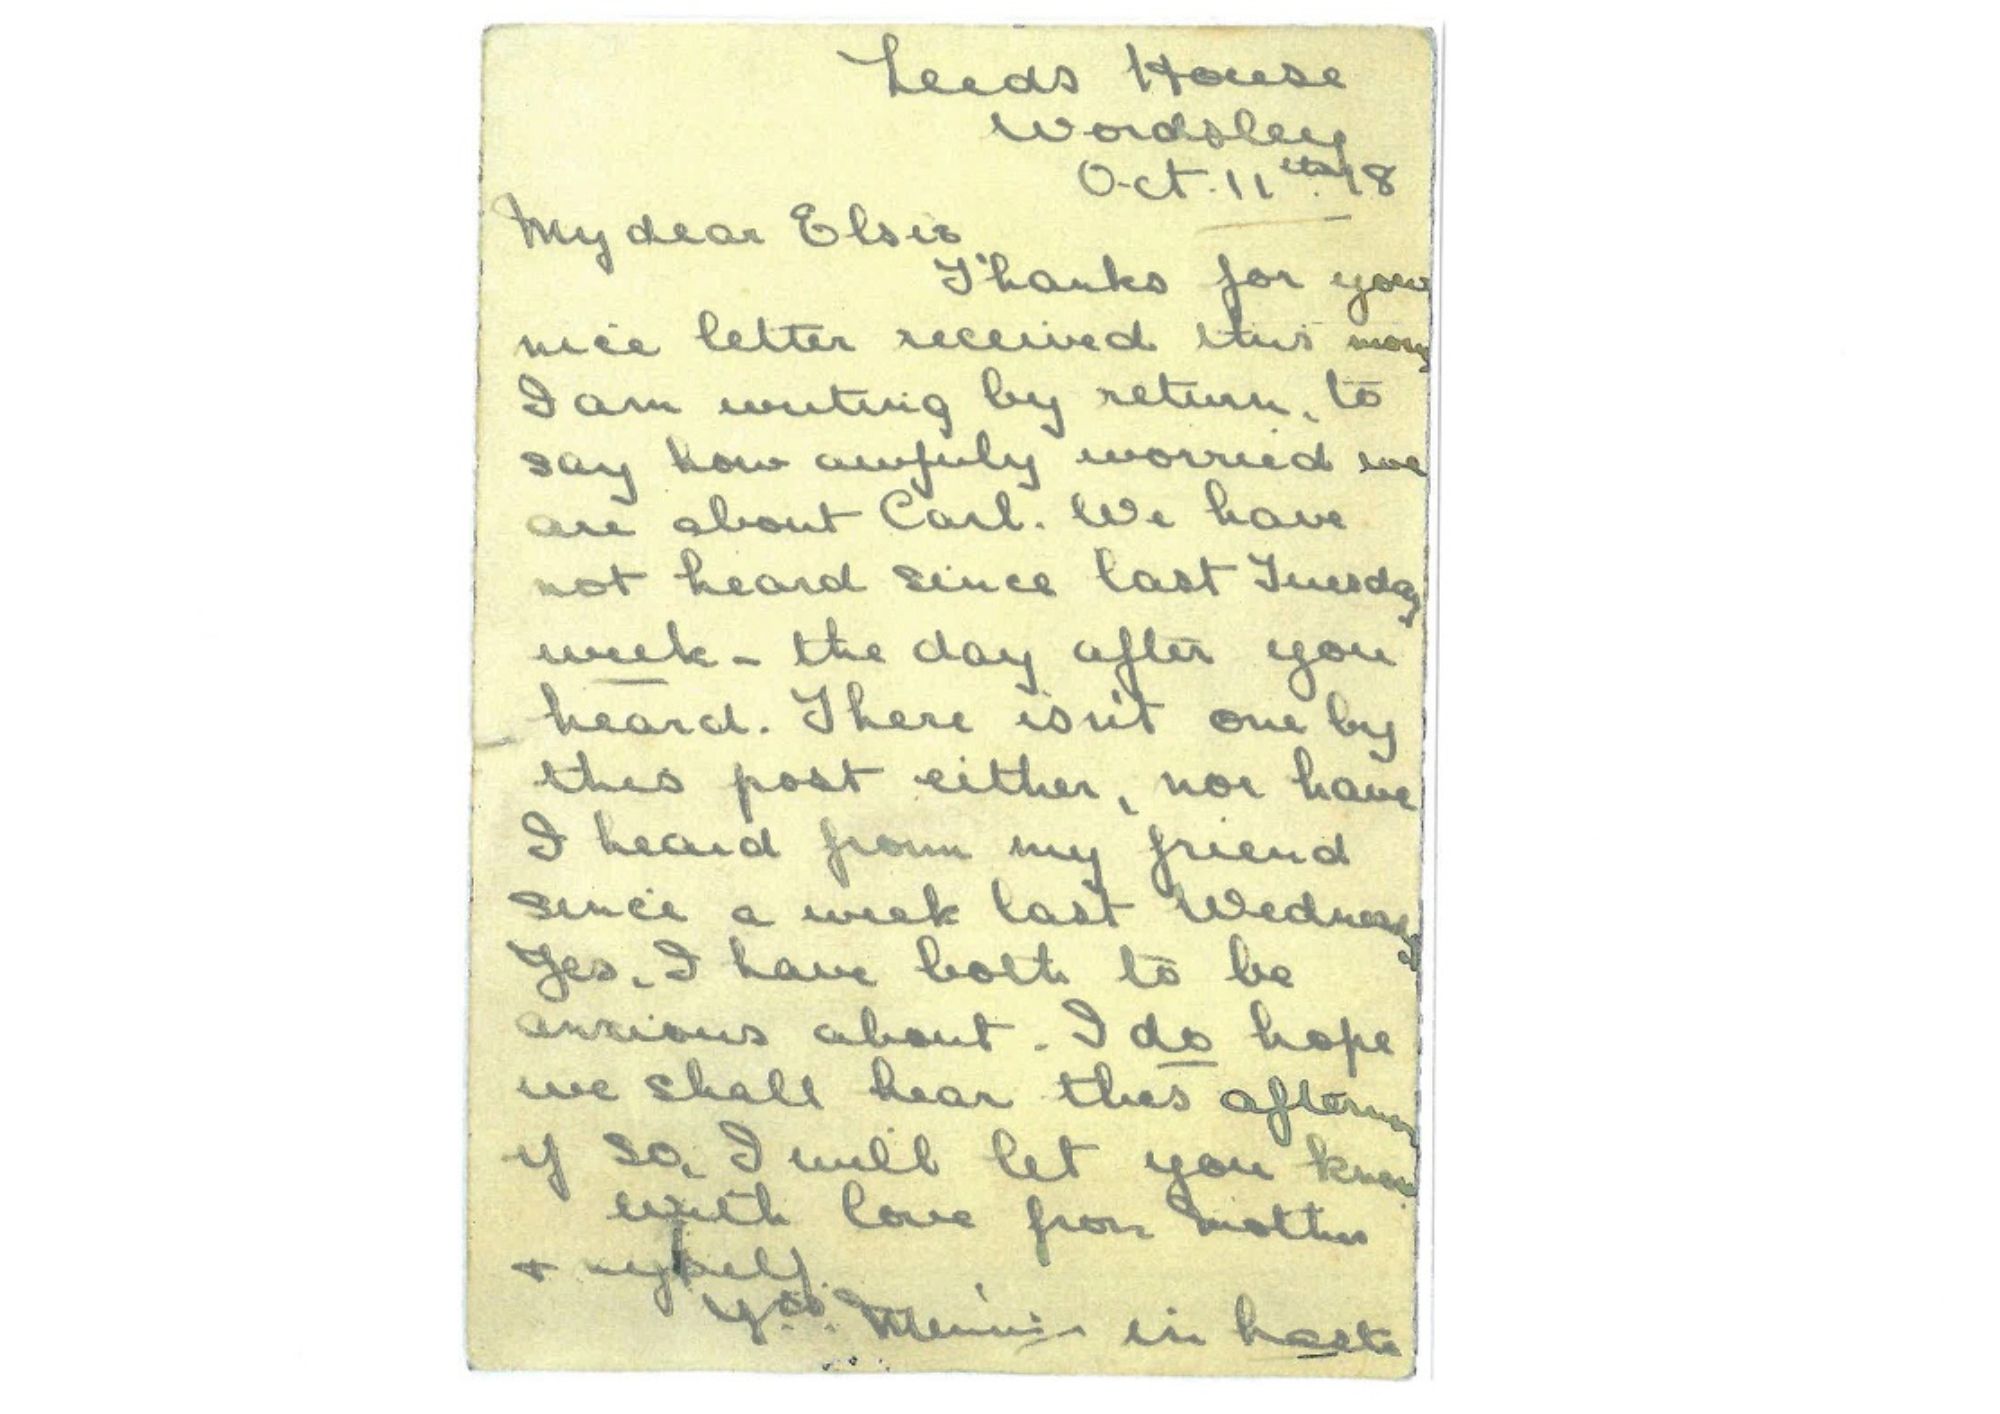 Leeds House
Wordsley
Oct. 11th 18
My dear Elsie
Thanks for your
nice letter received this morng
I am writing by return, to
say how awfuly worried we
are about Carl. We have
not heard since last Tuesday
week - the day after you
heard. There isn't one by
this post either, nor have
I heard from my friend
since a week last Wednesdy
Yes, I have both to be
anxious about. I do hope
we shall hear this
if so, I will let you know
with love from Mother
& myself.
Yrs. Minnie in haste